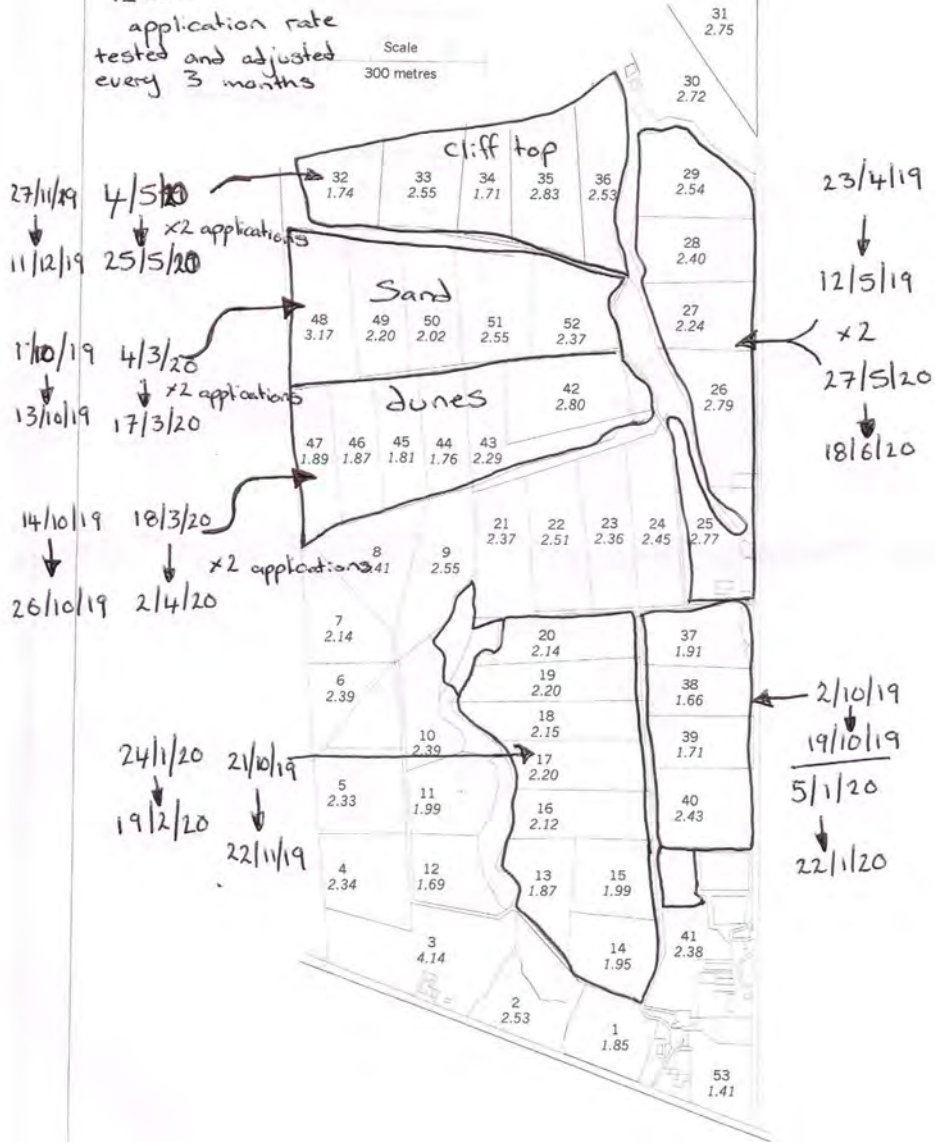 application rate
tested and adjusted
every 3 months
Scale
300 metres
31
2.75
30
2.72
cliff top
32
1.74
33
2.55
34
1.71
35
2.83
36
2.53
29
2.54
28
2.40
27
2.24
26
2.79
27/11/19
11/12/19
4/5/20
x2 applications
25/5/20
23/4/19
12/5/19
x2
27/5/20
18/6/20
Sand
48
3.17
49
2.20
50
2.02
51
2.55
52
2.37
1/10/19
13/10/19
4/3/20
x2 applications
17/3/20
dunes
42
2.80
47
1.89
46
1.87
45
1.81
44
1.76
43
2.29
14/10/19
26/10/19
18/3/20
x2 applications
2/4/20
8
41
9
2.55
21
2.37
22
2.51
23
2.36
24
2.45
25
2.77
7
2.14
6
2.39
20
2.14
19
2.20
18
2.15
17
2.20
16
2.12
37
1.91
38
1.66
39
1.71
40
2.43
2/10/19
19/10/19
5/1/20
22/1/20
24/1/20
19/2/20
21/10/19
22/11/19
10
2.39
5
2.33
11
1.99
4
2.34
12
1.69
13
1.87
15
1.99
14
1.95
41
2.38
3
4.14
2
2.53
1
1.85
53
1.41